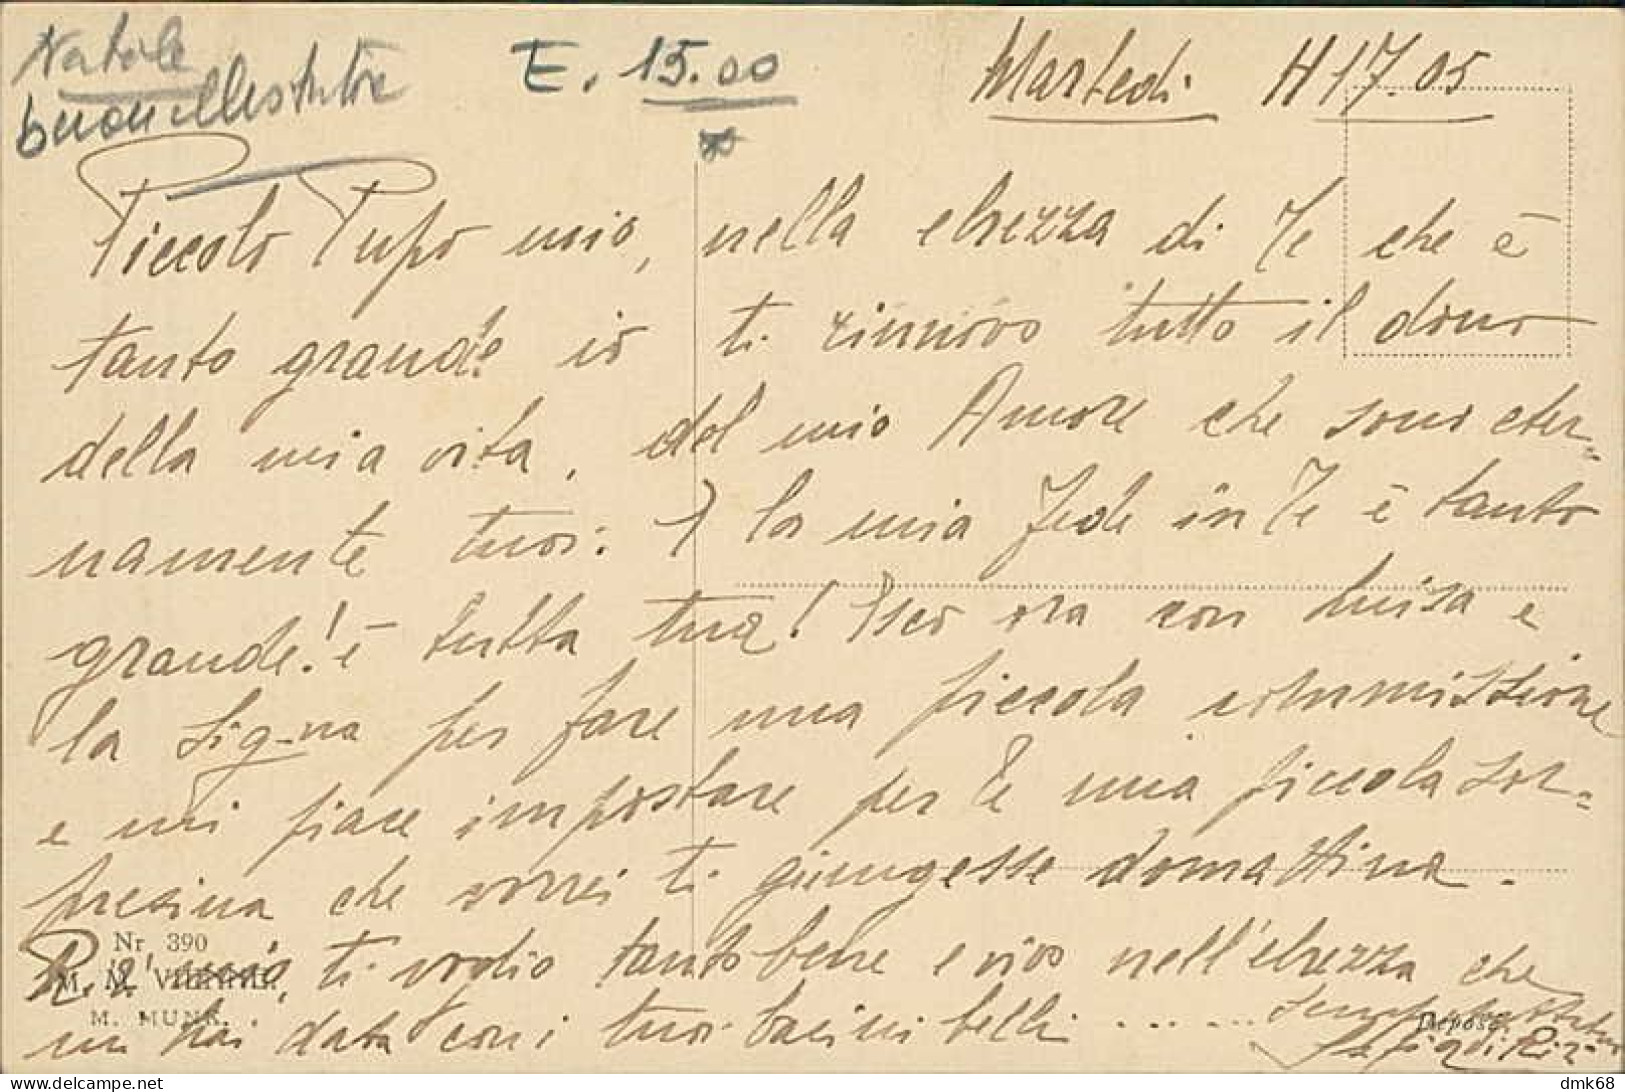 Natale
E. 15.00
Martedi H 17.05
Piccolo Pupo mio, nella ebrezza di Te che è
tanto grande io ti rinnovo tutto il dono
della mia vita, del mio Amore che sono eter-
namente tuoi: la mia Fede in Te è tanto
grande! è tutta tua! Esco ora con Luisa e
la Sig-na per fare una piccola commissione
e mi piace impostare per Te una piccola sor-
presina che vorrei ti giungesse domattina.
ti voglio tanto bene e vivo nell'ebrezza che
mi hai data con i tuoi bacini belli ......
Nr. 390
M. M. VIENNE.
M. MUNK.
Déposé
delcampe.net
dmk68